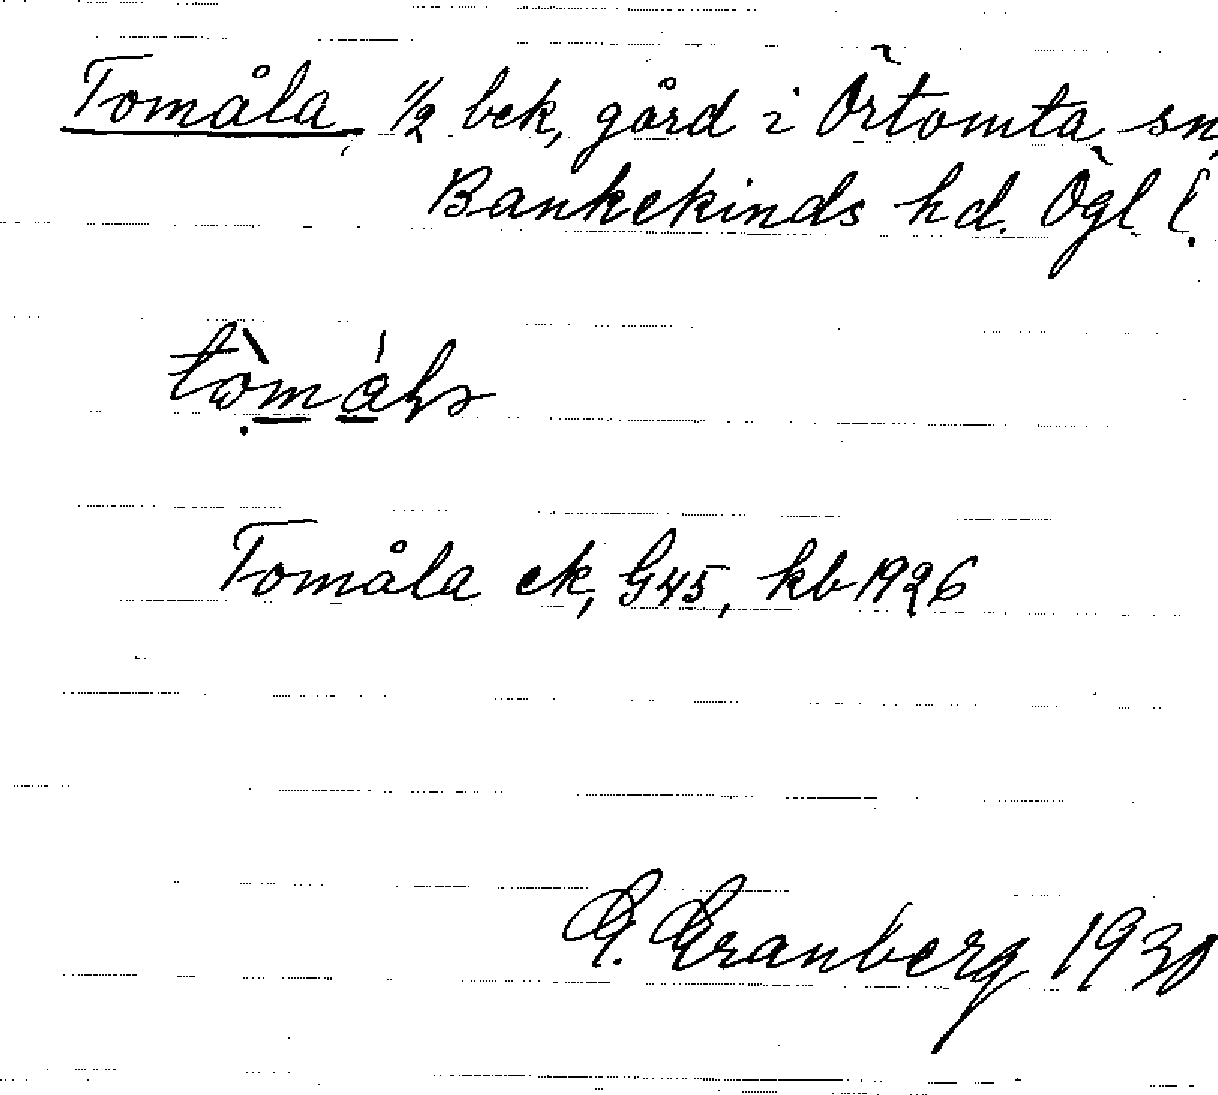 Tomåla, 1/2 bek, gård i Örtomta sn,
Bankekinds hd. Ögl l.
Tomåla ek, G45, kb 1926
G. Granberg 1930